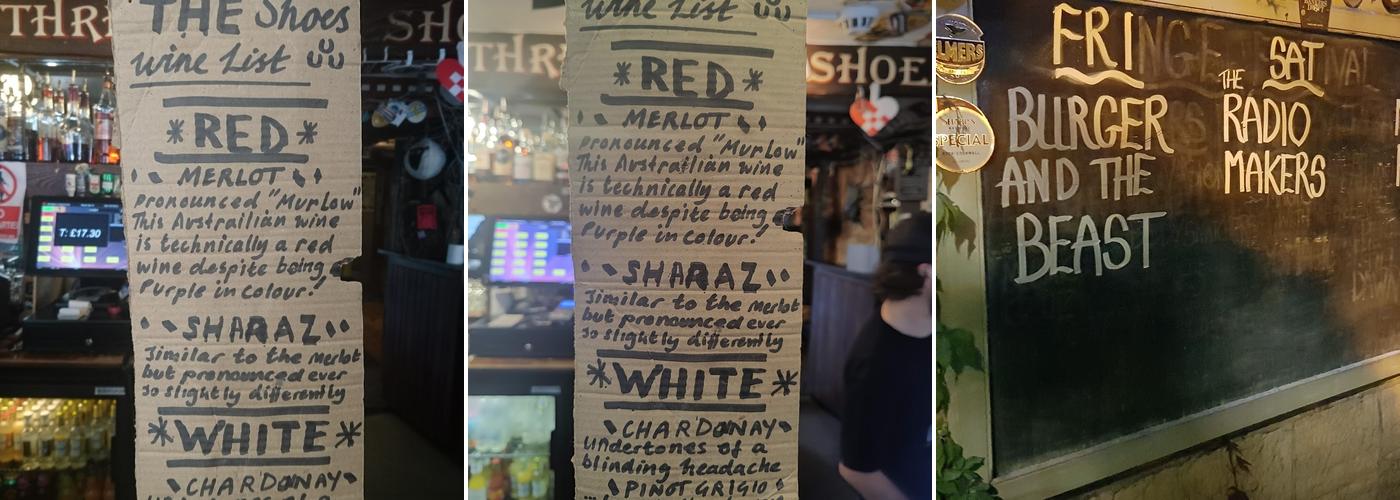 THR
SHO
THE Shoes
Wine List
RED
MERLOT
pronounced "MurLow"
This Australlian wine
is technically a red
wine despite being
Purple in colour!
SHARAZ
Similar to the Merlot
but pronounced ever
so slightly differently
WHITE
CHARDONAY
T: £17.30
THR
SHOE
Wine List
RED
MERLOT
pronounced "MurLow"
This Australlian wine
is technically a red
wine despite being
Purple in colour!
SHARAZ
Similar to the Merlot
but pronounced ever
so slightly differently
WHITE
CHARDONAY
undertones of a
blinding headache
PINOT GRIGIO
FRINGE
BURGER
AND THE
BEAST
SAT
THE
RADIO
MAKERS
LMERS
SPECIAL